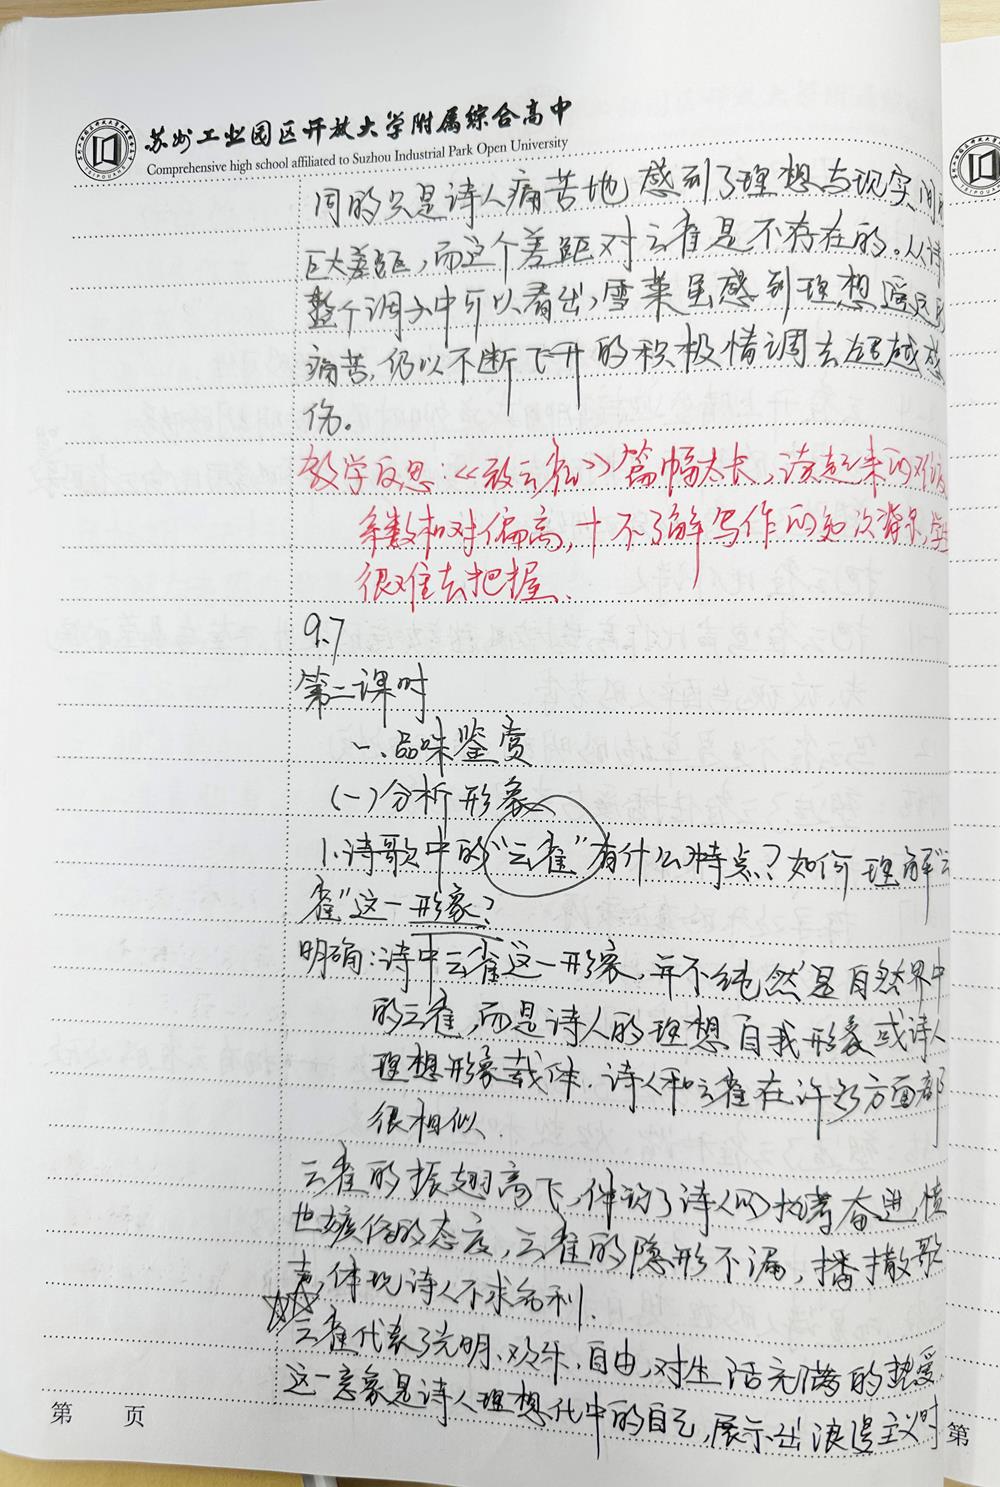 苏州工业园区开放大学附属综合高中
Comprehensive high school affiliated to Suzhou Industrial Park Open University
同的只是诗人痛苦地感到了理想与现实间的
巨大差距,而这个差距对云雀是不存在的。从诗
整个调子中可以看出,雪莱虽感到理想遥远的
痛苦,仍以不断飞升的积极情调去超越感
伤。
教学反思:《致云雀》篇幅太长,读起来的难度
系数相对偏高,十不了解写作的 次背景,学生
很难去把握.
9.7
第二课时
一、品味鉴赏
(一)分析形象
1.诗歌中的“云雀”有什么特点?如何理解“云
雀”这一形象?
明确:诗中云雀这一形象,并不纯然是自然界中
的云雀,而是诗人的理想自我形象或诗人
理想形象载体.诗人和云雀在许多方面都
很相似.
云雀的振翅高飞,体现了诗人的 奋进,愤
世嫉俗的态度,云雀的隐形不漏,播撒歌
声,体现诗人不求名利.
云雀代表了光明、欢乐、自由,对生活充满的热爱.
这一意象是诗人理想化中的自己,展示出浪漫主义时
第 页
第